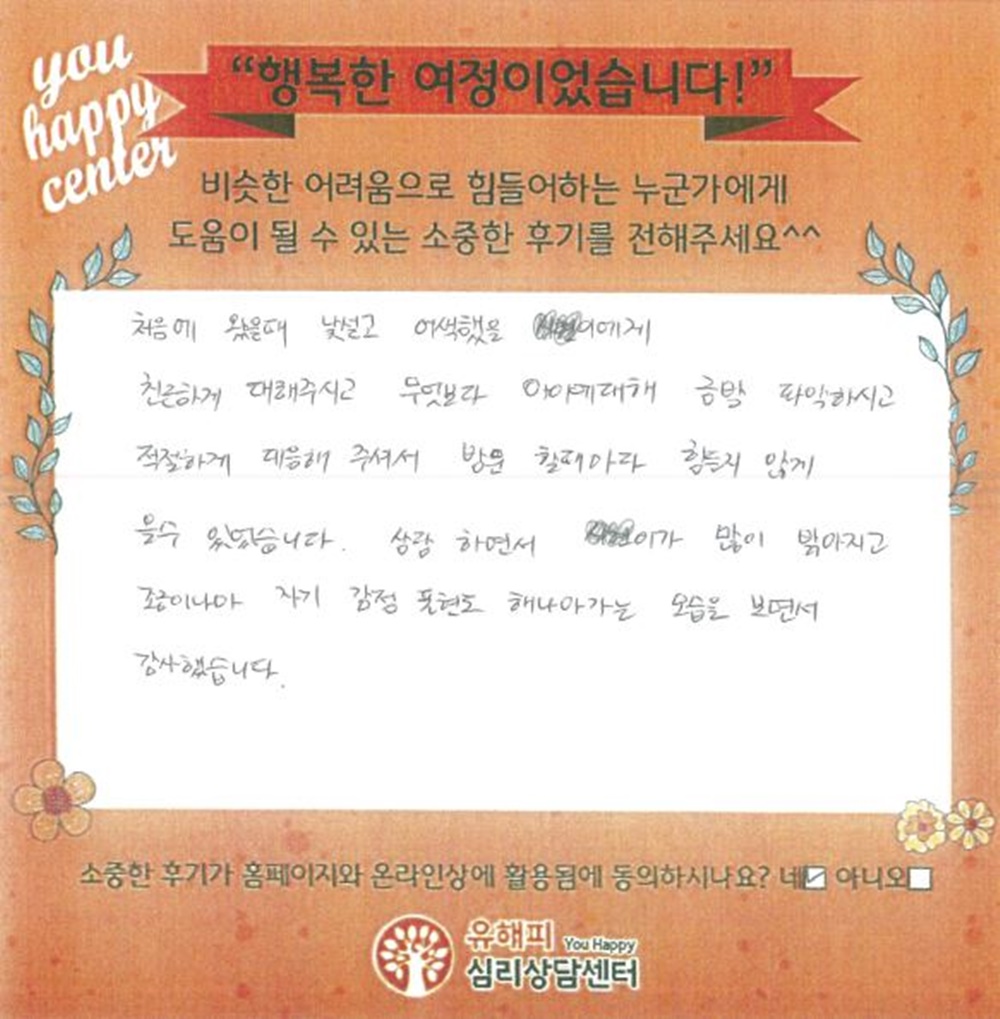 you
happy
center
“행복한 여정이었습니다!”
비슷한 어려움으로 힘들어하는 누군가에게
도움이 될 수 있는 소중한 후기를 전해주세요^^
처음에 왔을때 낯설고 어색했을 이에게
친근하게 대해주시고 무엇보다 아이에대해 금방 파악하시고
적절하게 대응해 주셔서 방문 할때마다 힘들지 않게
올수 있었습니다. 상담 하면서 이가 많이 밝아지고
조금이나마 자기 감정 표현도 해나아가는 모습을 보면서
감사했습니다.
소중한 후기가 홈페이지와 온라인상에 활용됨에 동의하시나요? 네☑ 아니오☐
유해피 You Happy
심리상담센터